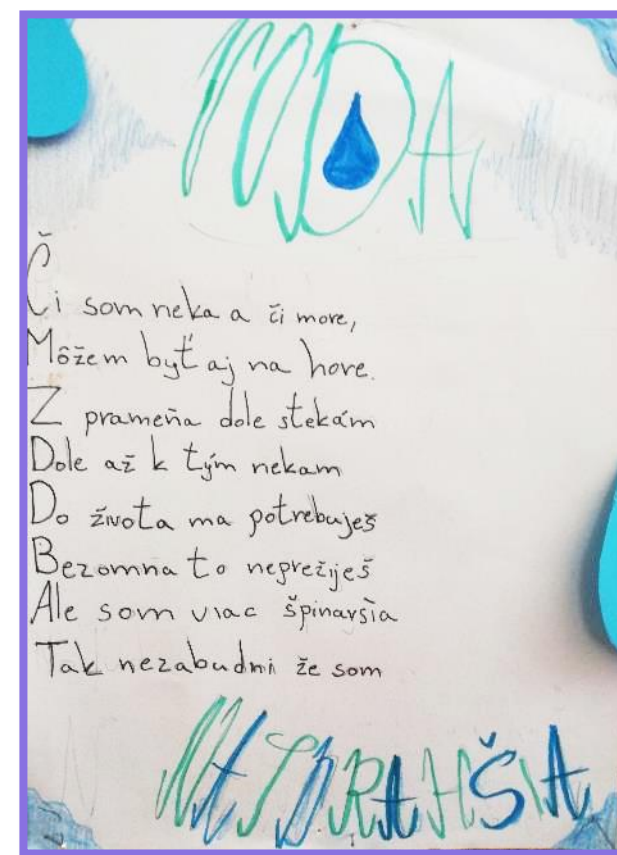 VODA
Či som rieka a či more,
Môžem byť aj na hore.
Z prameňa dole stekám
Dole až k tým riekam
Do života ma potrebuješ
Bezomna to neprežiješ
Ale som viac špinavšia
Tak nezabudni že som
NAJDRAHŠIA